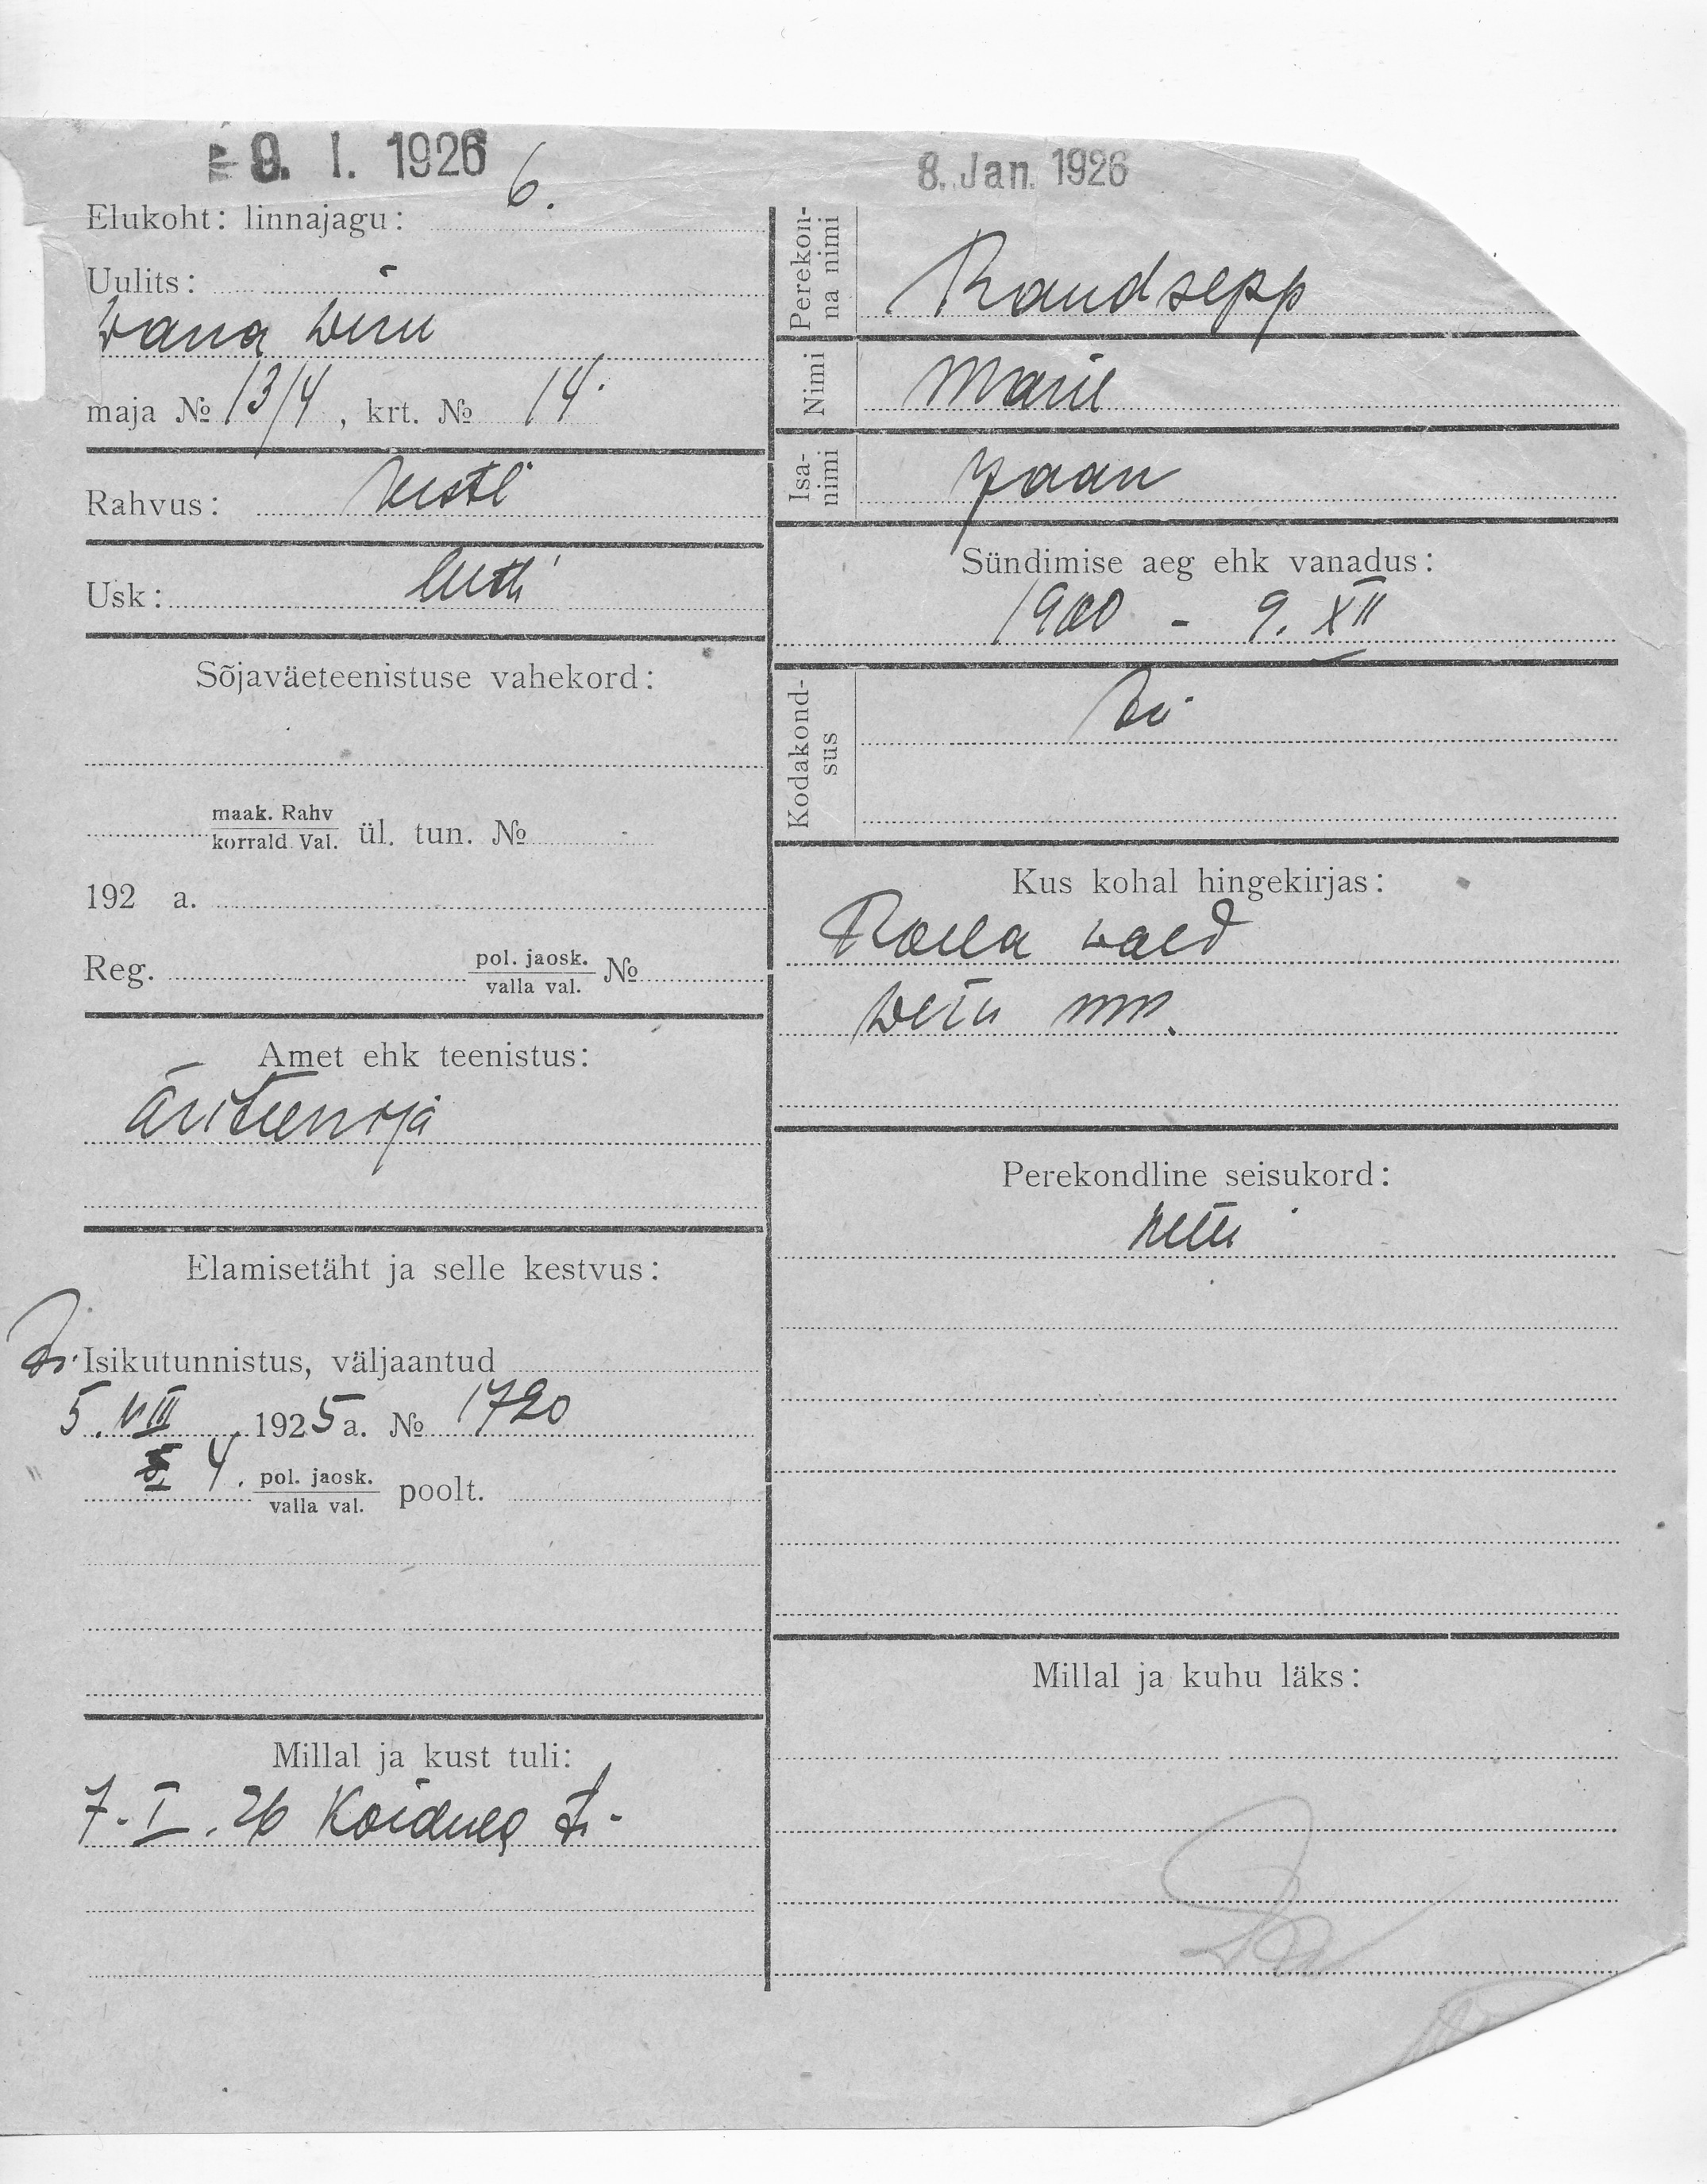 9. I. 1926
Elukoht: linnajagu: 6.
Uulits:
Wana Wiru
maja № 13/4, krt. № 14.
Rahvus: Eesti
Usk: luth
Sõjaväeteenistuse vahekord:
maak. Rahv
korrald. Val. ül. tun. №
192 a.
Reg. pol. jaosk.
valla val. №
Amet ehk teenistus:
äriteenija
Elamisetäht ja selle kestvus:
Isikutunnistus, väljaantud
5. VIII 1925 a. № 1720
4. pol. jaosk.
valla val. poolt.
Millal ja kust tuli:
7. I. 26 Koidula
8. Jan. 1926
Perekon-
na nimi Raudsepp
Nimi Marie
Isa-
nimi Jaan
Sündimise aeg ehk vanadus:
1900 - 9. XII
Kodakond-
sus
Kus kohal hingekirjas:
Roela wald
Wiru mm.
Perekondline seisukord:
neiu
Millal ja kuhu läks: